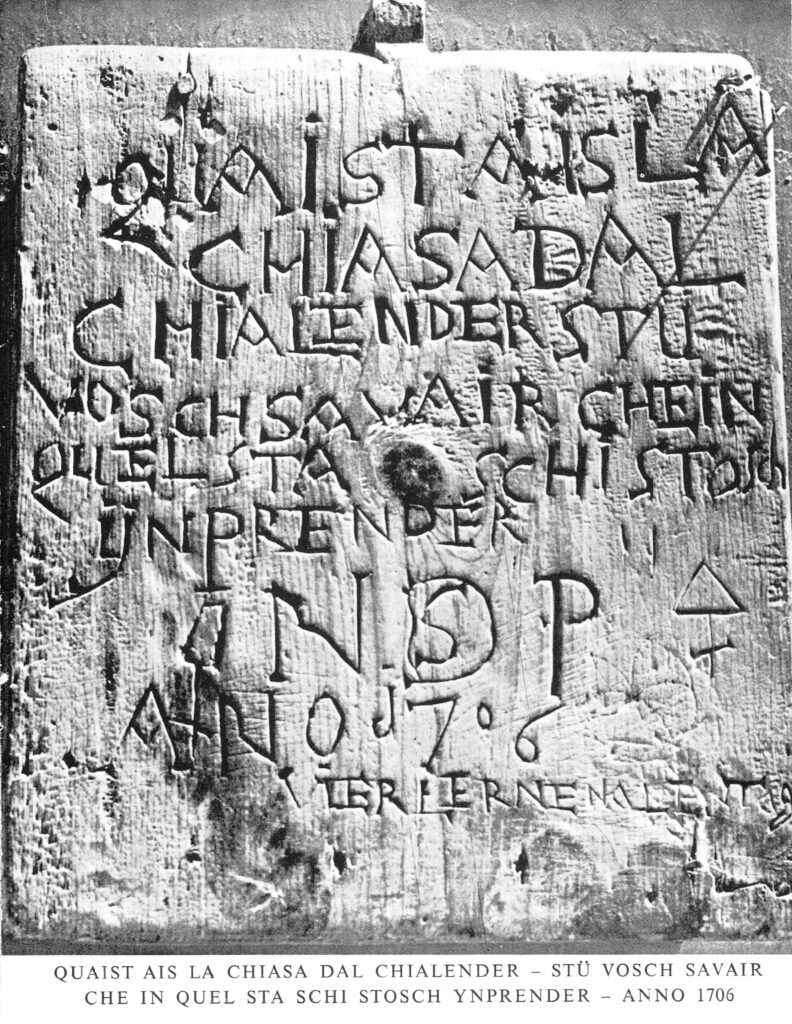 QUAISTA ISLA
CHIASADAL
CHIALENDERSTÜ
VOSCHSAVAIR CHEIN
QUELSTA SCHI STOSCH
YNPRENDER
AN SD P
ANO 1706
VIER LERNEN ALEN TAG
QUAIST AIS LA CHIASA DAL CHIALENDER – STÜ VOSCH SAVAIR
CHE IN QUEL STA SCHI STOSCH YNPRENDER – ANNO 1706